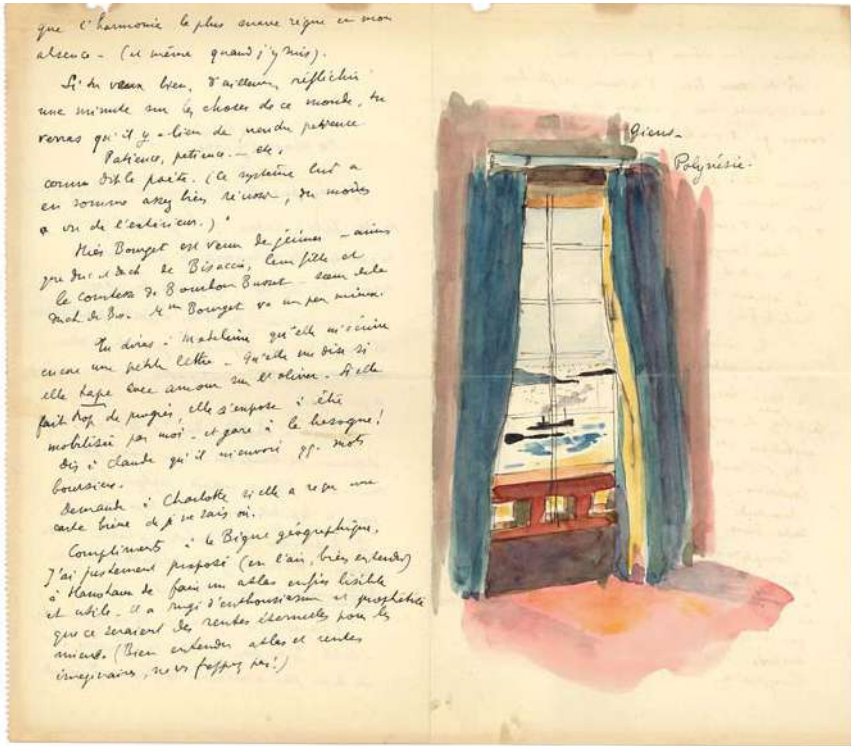 que l'harmonie la plus suave règne en mon
absence - (et même quand j'y suis).
Si tu veux bien, d'ailleurs, réfléchir
une minute sur les choses de ce monde, tu
verras qu'il y a lieu de prendre patience
Patience, patience - etc.
comme dit le poète. (Ce système lui a
en somme assez bien réussi, du moins
vu de l'extérieur.)
Miés Bourget est venu déjeuner - ainsi
que duc et duch de Bisaccia, leur fille et
la comtesse de Bourbon Busset - sœur de la
duch. de Bis. Mme Bourget va un peu mieux.
Tu diras à Madeleine qu'elle m'écrive
encore une petite lettre - Qu'elle me dise si
elle tape avec amour sur l'oliver. Si elle
fait trop de progrès, elle s'expose à être
mobilisée par moi - et gare à la besogne!
Dis à Claude qu'il m'envoie qq. mots
boursiers.
Demande à Charlotte si elle a reçu une
carte de je ne sais où.
Compliments à la Bigue géographique.
J'ai justement proposé (en l'air, bien entendu)
à de faire un atlas enfin lisible
et utile - il a rugi d'enthousiasme et prophétisé
que ce seraient des rentes éternelles pour les
miens. (Bien entendu atlas et rentes
imaginaires, ne vs frappez pas!)
Giens -
Polynésie.